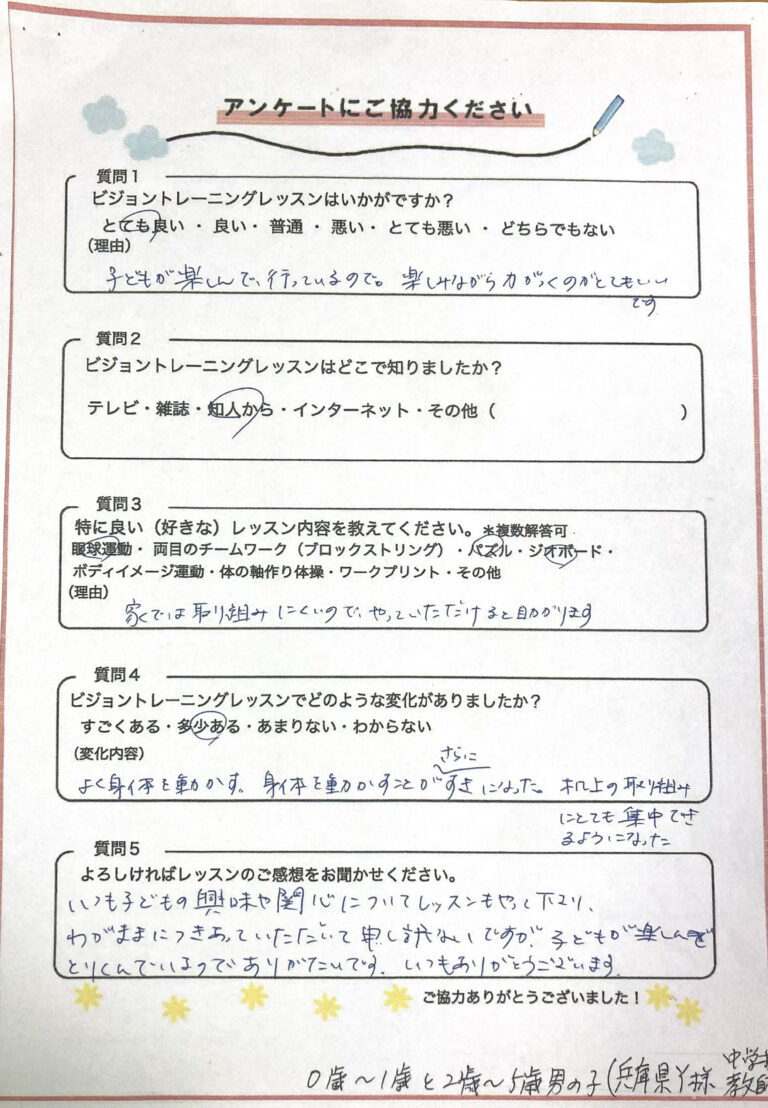 アンケートにご協力ください
質問1
ビジョントレーニングレッスンはいかがですか？
とても良い ・ 良い・ 普通 ・ 悪い・ とても悪い ・ どちらでもない
（理由）
子どもが楽しんで、行っているので。楽しみながら力がつくのがとてもいい
です
質問2
ビジョントレーニングレッスンはどこで知りましたか？
テレビ・雑誌・知人から・インターネット・その他（　　　）
質問3
特に良い（好きな）レッスン内容を教えてください。＊複数解答可
眼球運動・ 両目のチームワーク（ブロックストリング）・パズル・ジオボード・
ボディイメージ運動・体の軸作り体操・ワークプリント・その他
（理由）
家では取り組みにくいので、やっていただけると助かります
質問4
ビジョントレーニングレッスンでどのような変化がありましたか？
すごくある・多少ある・あまりない・わからない
（変化内容）
さらに
よく身体を動かす。身体を動かすことがすきになった。机上の取り組み
にとても集中でき
るようになった
質問5
よろしければレッスンのご感想をお聞かせください。
いつも子どもの興味や関心についてレッスンもやって下さり、
わがままにつきあっていただいて申し訳ないですが、子どもが楽しんで
とりくんでいるのでありがたいです。いつもありがとうございます。
ご協力ありがとうございました！
0歳〜1歳と2歳〜5歳男の子(兵庫県Y様 中学
教師